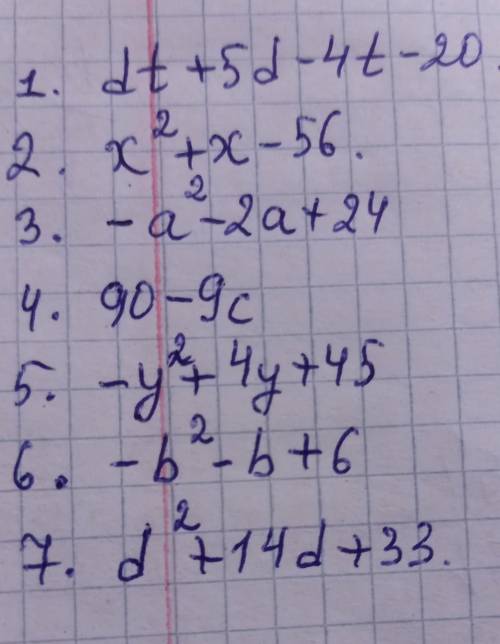 1. dt + 5d - 4t - 20.
2. x² + x - 56.
3. - a² - 2a + 24
4. 90 - 9c
5. - y² + 4y + 45
6. - b² - b + 6
7. d² + 14d + 33.